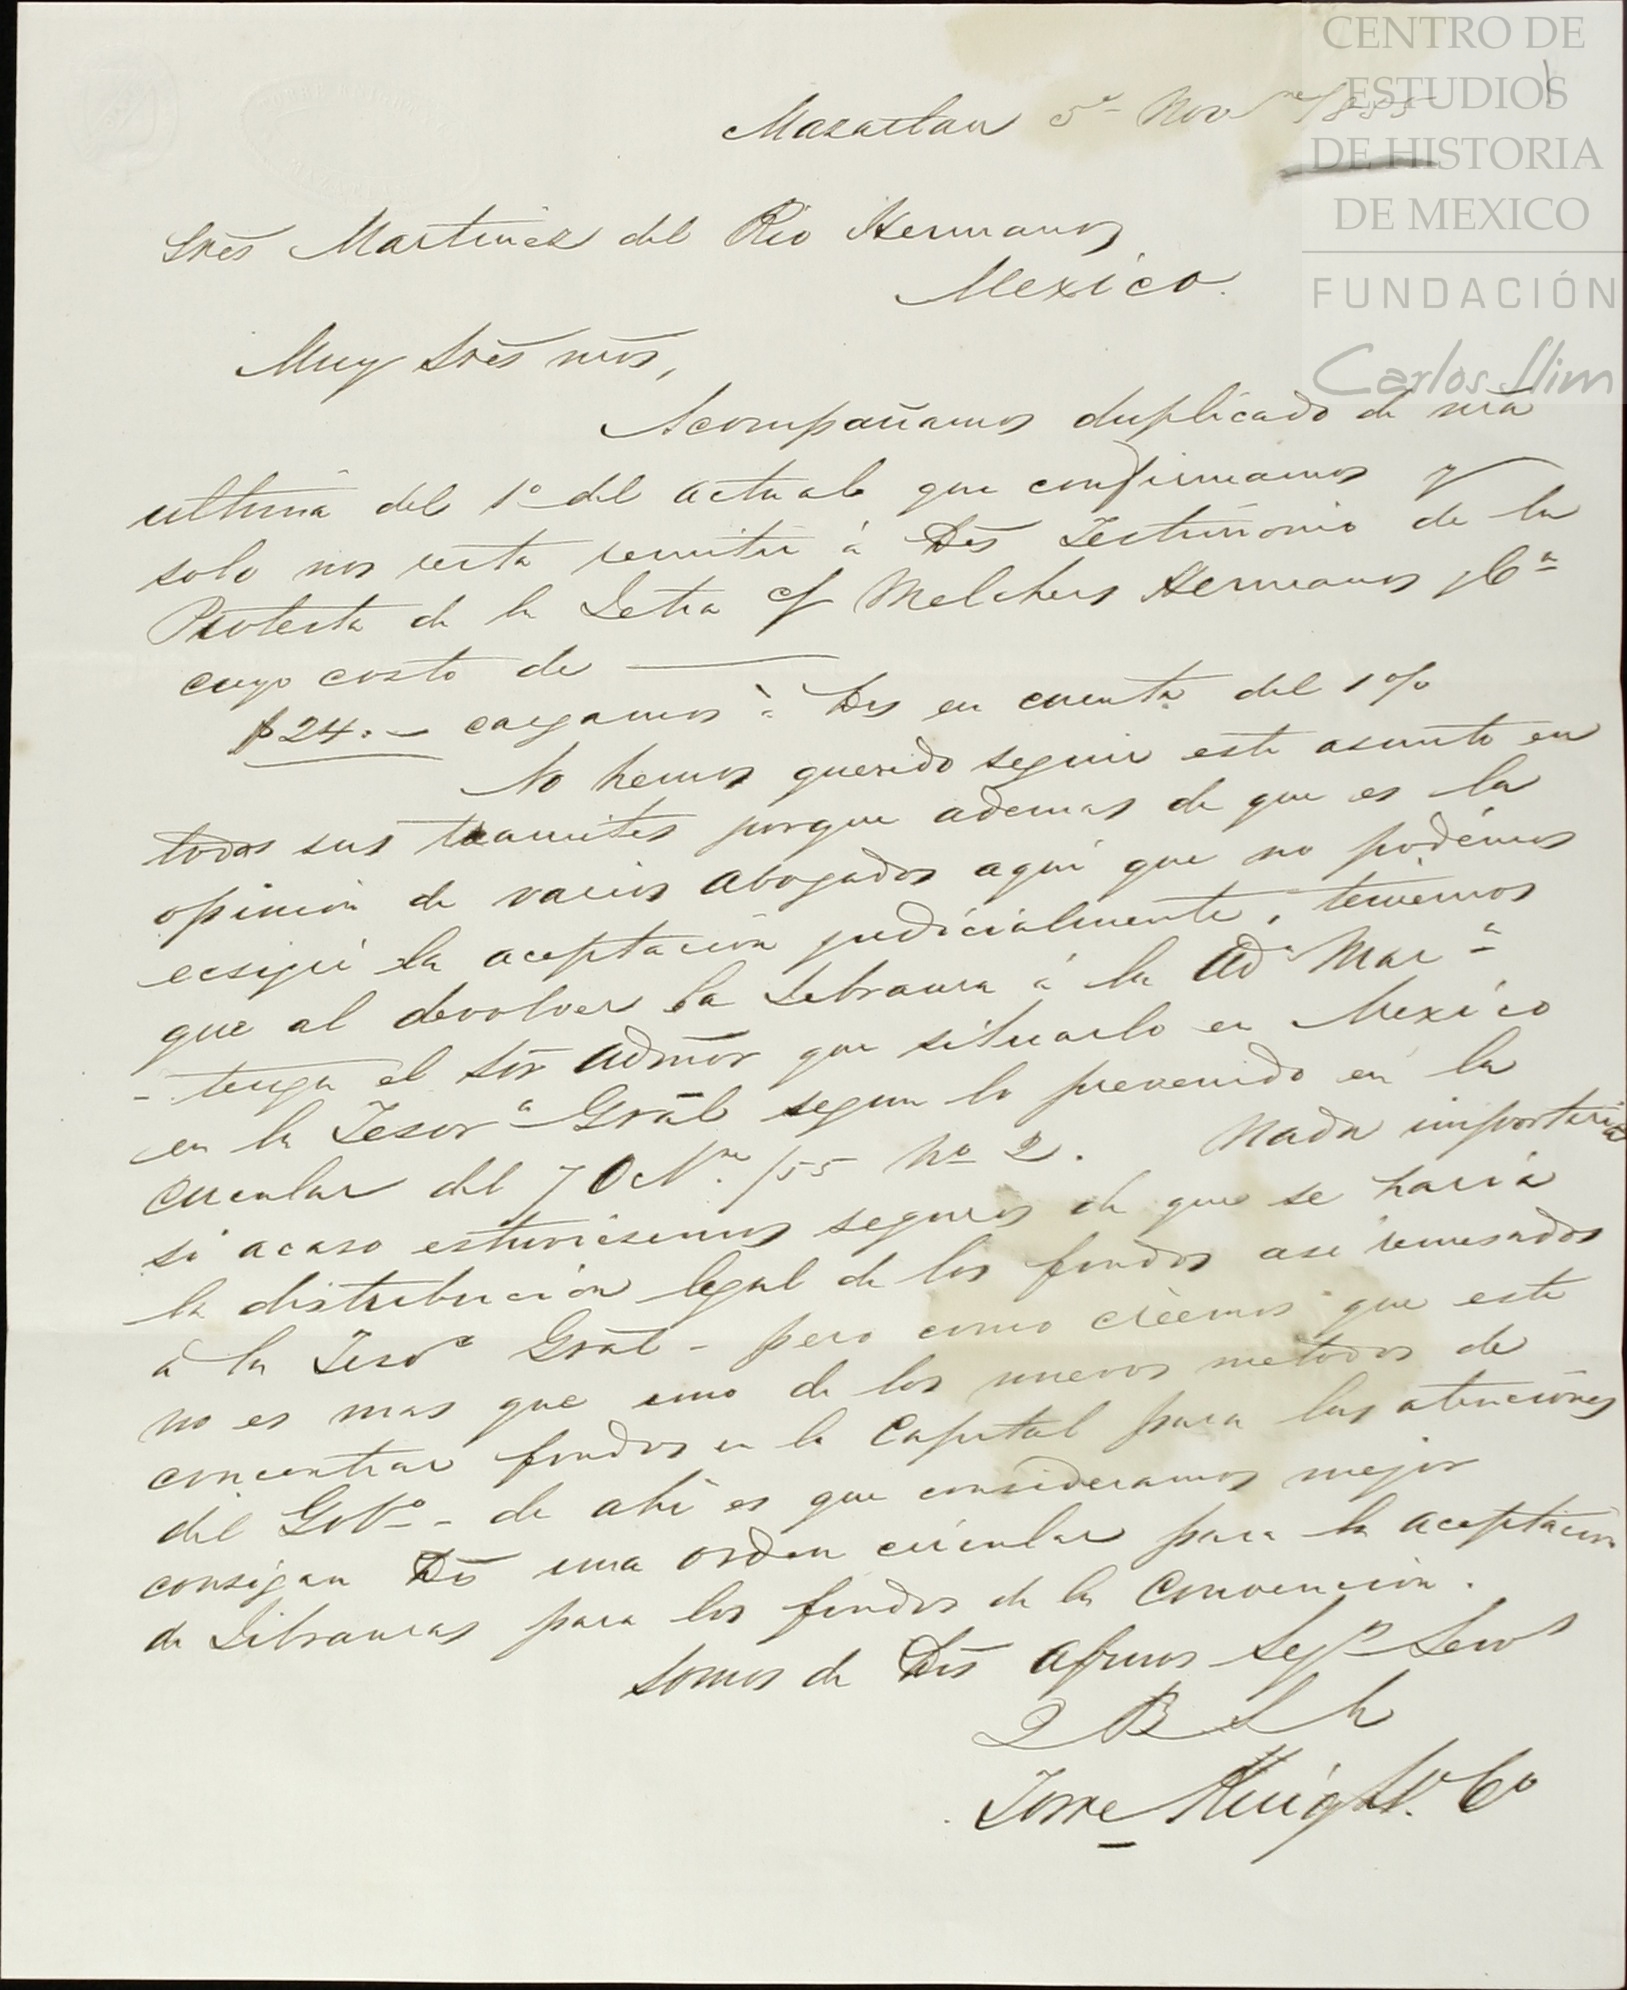 CENTRO DE
ESTUDIOS
DE HISTORIA
DE MEXICO
FUNDACIÓN
Carlos Slim
Mazatlan 5 de Novre 1855
Sres Martinez del Rio Hermanos
Mexico.
Muy Sres nros,
Acompañamos duplicado de nra
ultima del 1o del actual que confirmamos y
solo nos resta remitir á Vds Testimonio de la
Protesta de la Letra c/ Melchers Hermanos y Ca
cuyo costo de
$24.– cargamos á Vds en cuenta del 1%
No hemos querido seguir este asunto en
todos sus tramites porque ademas de que es la
opinion de varios abogados aqui que no podémos
ecsigir la aceptacion judicialmente, tememos
que al devolver la Libranza á la Ada Mara
tenga el Sor Admor que situarlo en Mexico
en la Tesora Gral segun lo prevenido en la
Circular del 7 Octre /55 No 2. Nada importaria
si acaso estuviesemos seguros de que se haria
la distribucion legal de los fondos asi remesados
á la Tesora Gral – pero como créemos que este
no es mas que uno de los nuevos metodos de
concentrar fondos en la Capital para las atenciónes
del Gobo – de ahi es que consideramos mejor
consigan Vds una orden circular para la aceptacion
de Libranzas para los fondos de la Convencion.
Somos de Vds afmos Segs Servs
Q B S M
Torre Knight y Co